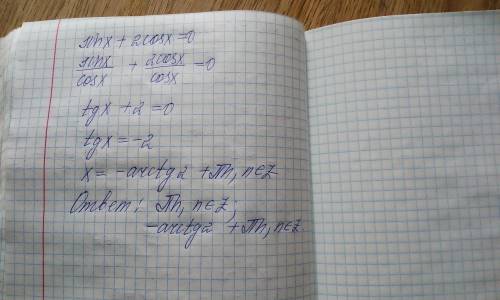 sinx + 2cosx = 0
sinx/cosx + 2cosx/cosx = 0
tgx + 2 = 0
tgx = -2
x = -arctg2 + πn, n∈Z
Ответ: πn, n∈Z;
-arctg2 + πn, n∈Z